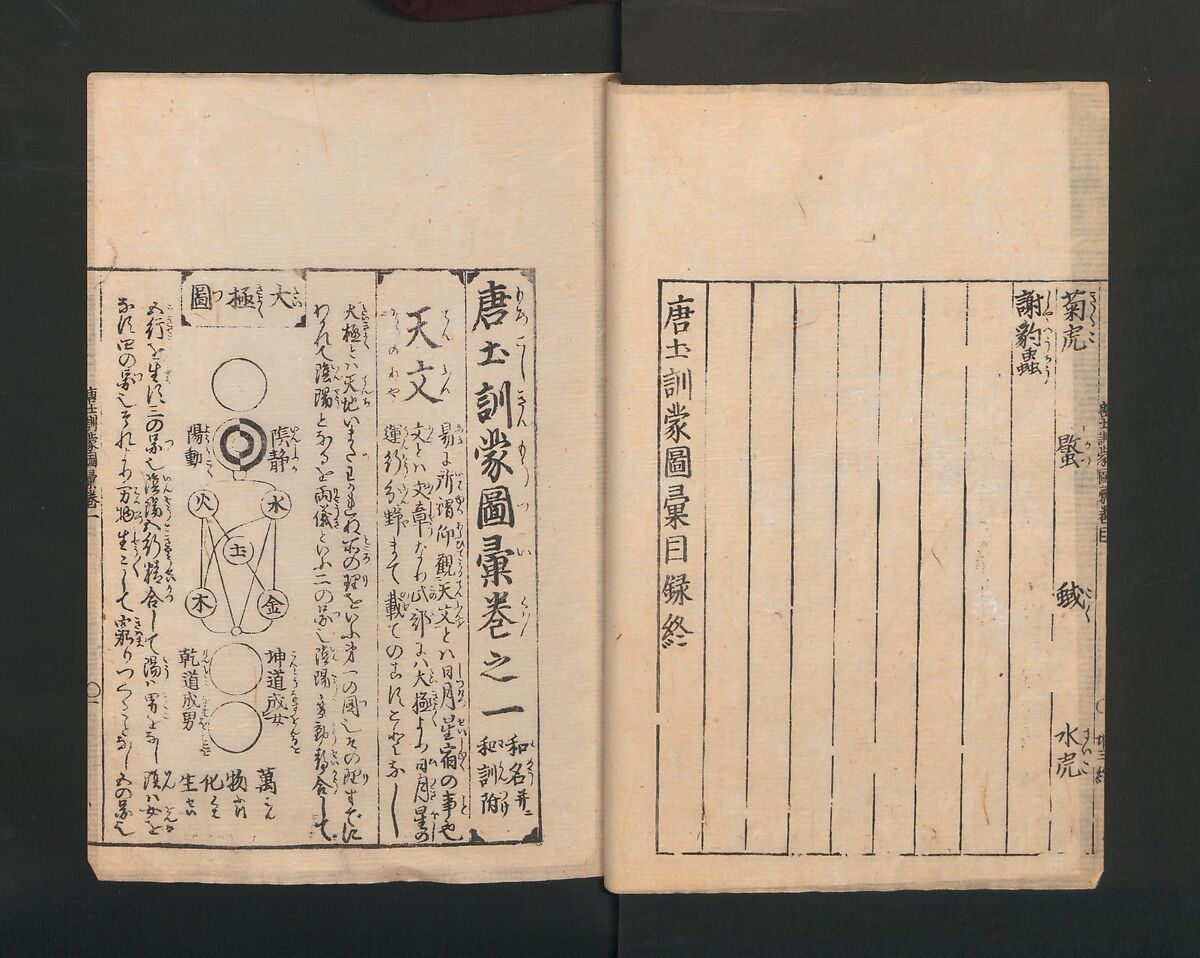 菊虎
䘌
蜮
水虎
謝豹蟲
唐土訓蒙圖彙目録終
唐土訓蒙圖彙巻之一
和名并ニ
和訓附
天文
易に所謂仰観天文とハ日月星宿の事也
文とハ文章なり此部にハ大極より日月星の
運行分野まて載てのこすことなし
大極とハ天地いまたわかれぬ前の理をいふ第一の圖也その理すてに
わかれて陰陽となるを両儀といふ二の圖也陰陽変動静合して
大極圖
陰静
陽動
水
火
土
金
木
坤道成女
乾道成男
萬物化生
五行を生す三の圖也陰陽五行精合して陽ハ男となし陰ハ女を
なす四の圖也それより万物生々して窮りつくることなし五の圖也
唐土訓蒙圖彙巻一